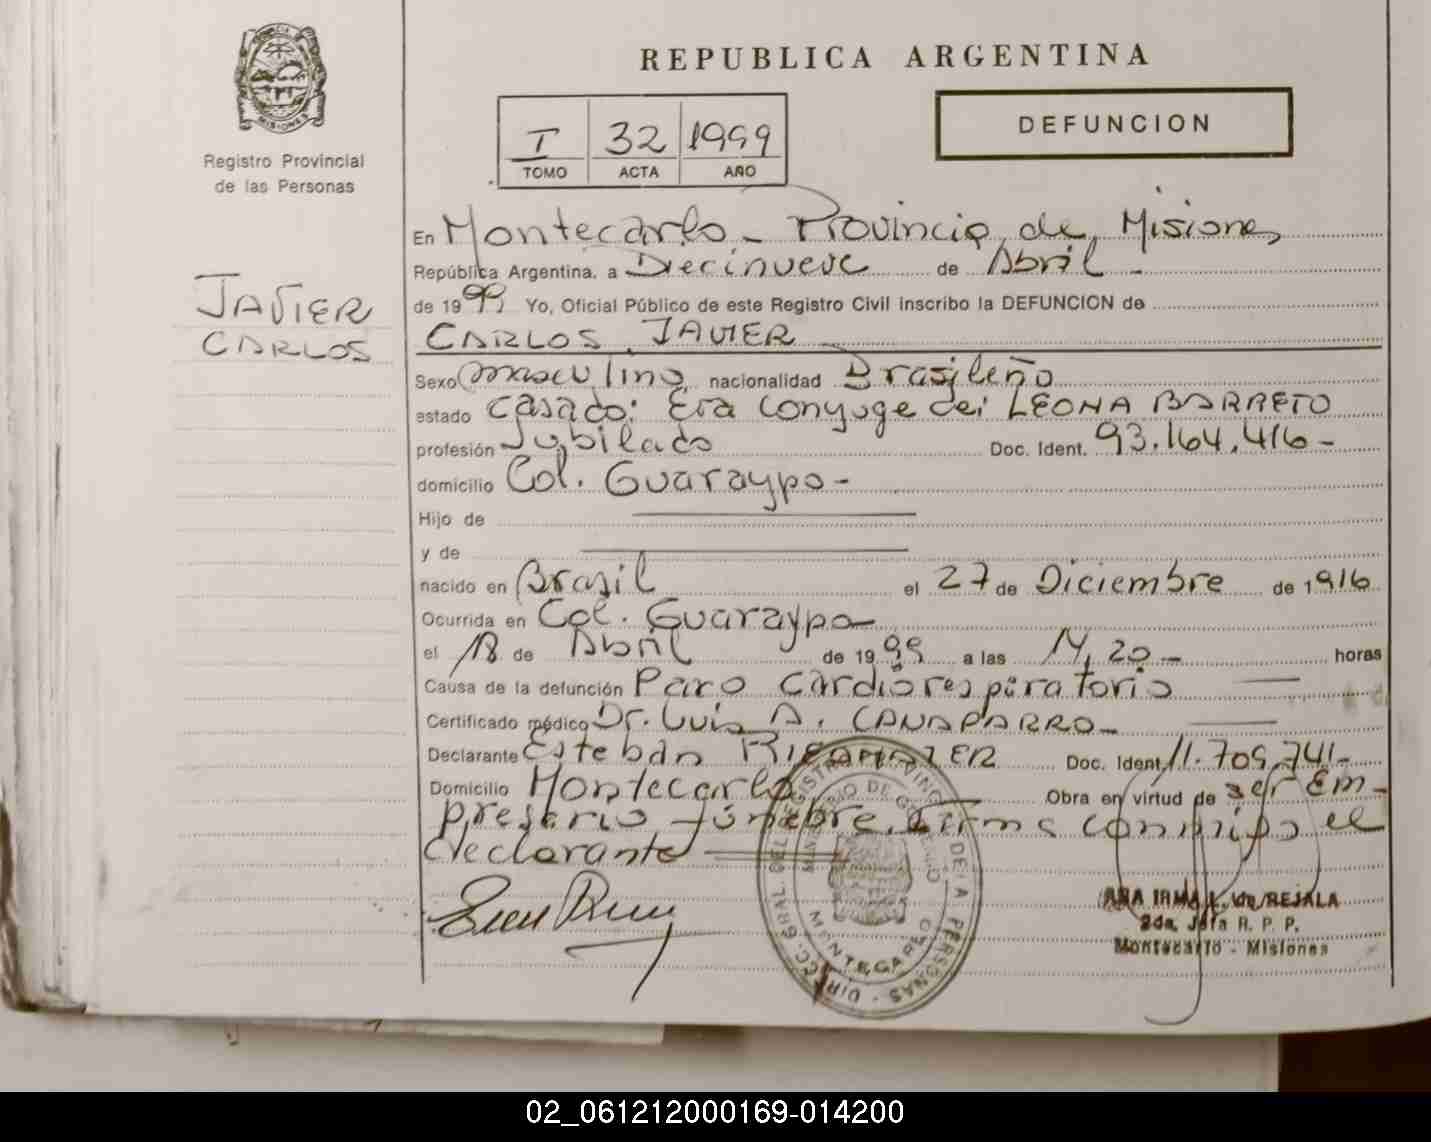 REPUBLICA ARGENTINA
MISIONES
Registro Provincial
de las Personas
I 32 1999
TOMO ACTA AÑO
DEFUNCION
JAVIER
CARLOS
En Montecarlo - Provincia de Misiones
República Argentina, a Diecinueve de Abril -
de 1999 Yo, Oficial Público de este Registro Civil inscribo la DEFUNCION de
CARLOS JAVIER
Sexo masculino nacionalidad Brasileño
estado Casado: Era Conyuge de: LEONA BARRETO
profesión Jubilado Doc. Ident. 93.164.416-
domicilio Col. Guaraypo-
Hijo de
y de
nacido en Brasil el 27 de Diciembre de 1916
Ocurrida en Col. Guaraypo
el 18 de Abril de 1999 a las 14,20- horas
Causa de la defunción Paro Cardiorespiratorio
Certificado médico Dr. Luis A. CANAPARRO-
Declarante Esteban Doc. Ident. 11.709.741-
Domicilio Montecarlo Obra en virtud de ser Em-
presario fúnebre. Firma conmigo el
declarante
ANA IRMA L. Vda. REJALA
2da. Jefa R. P. P.
Montecarlo - Misiones
02_061212000169-014200